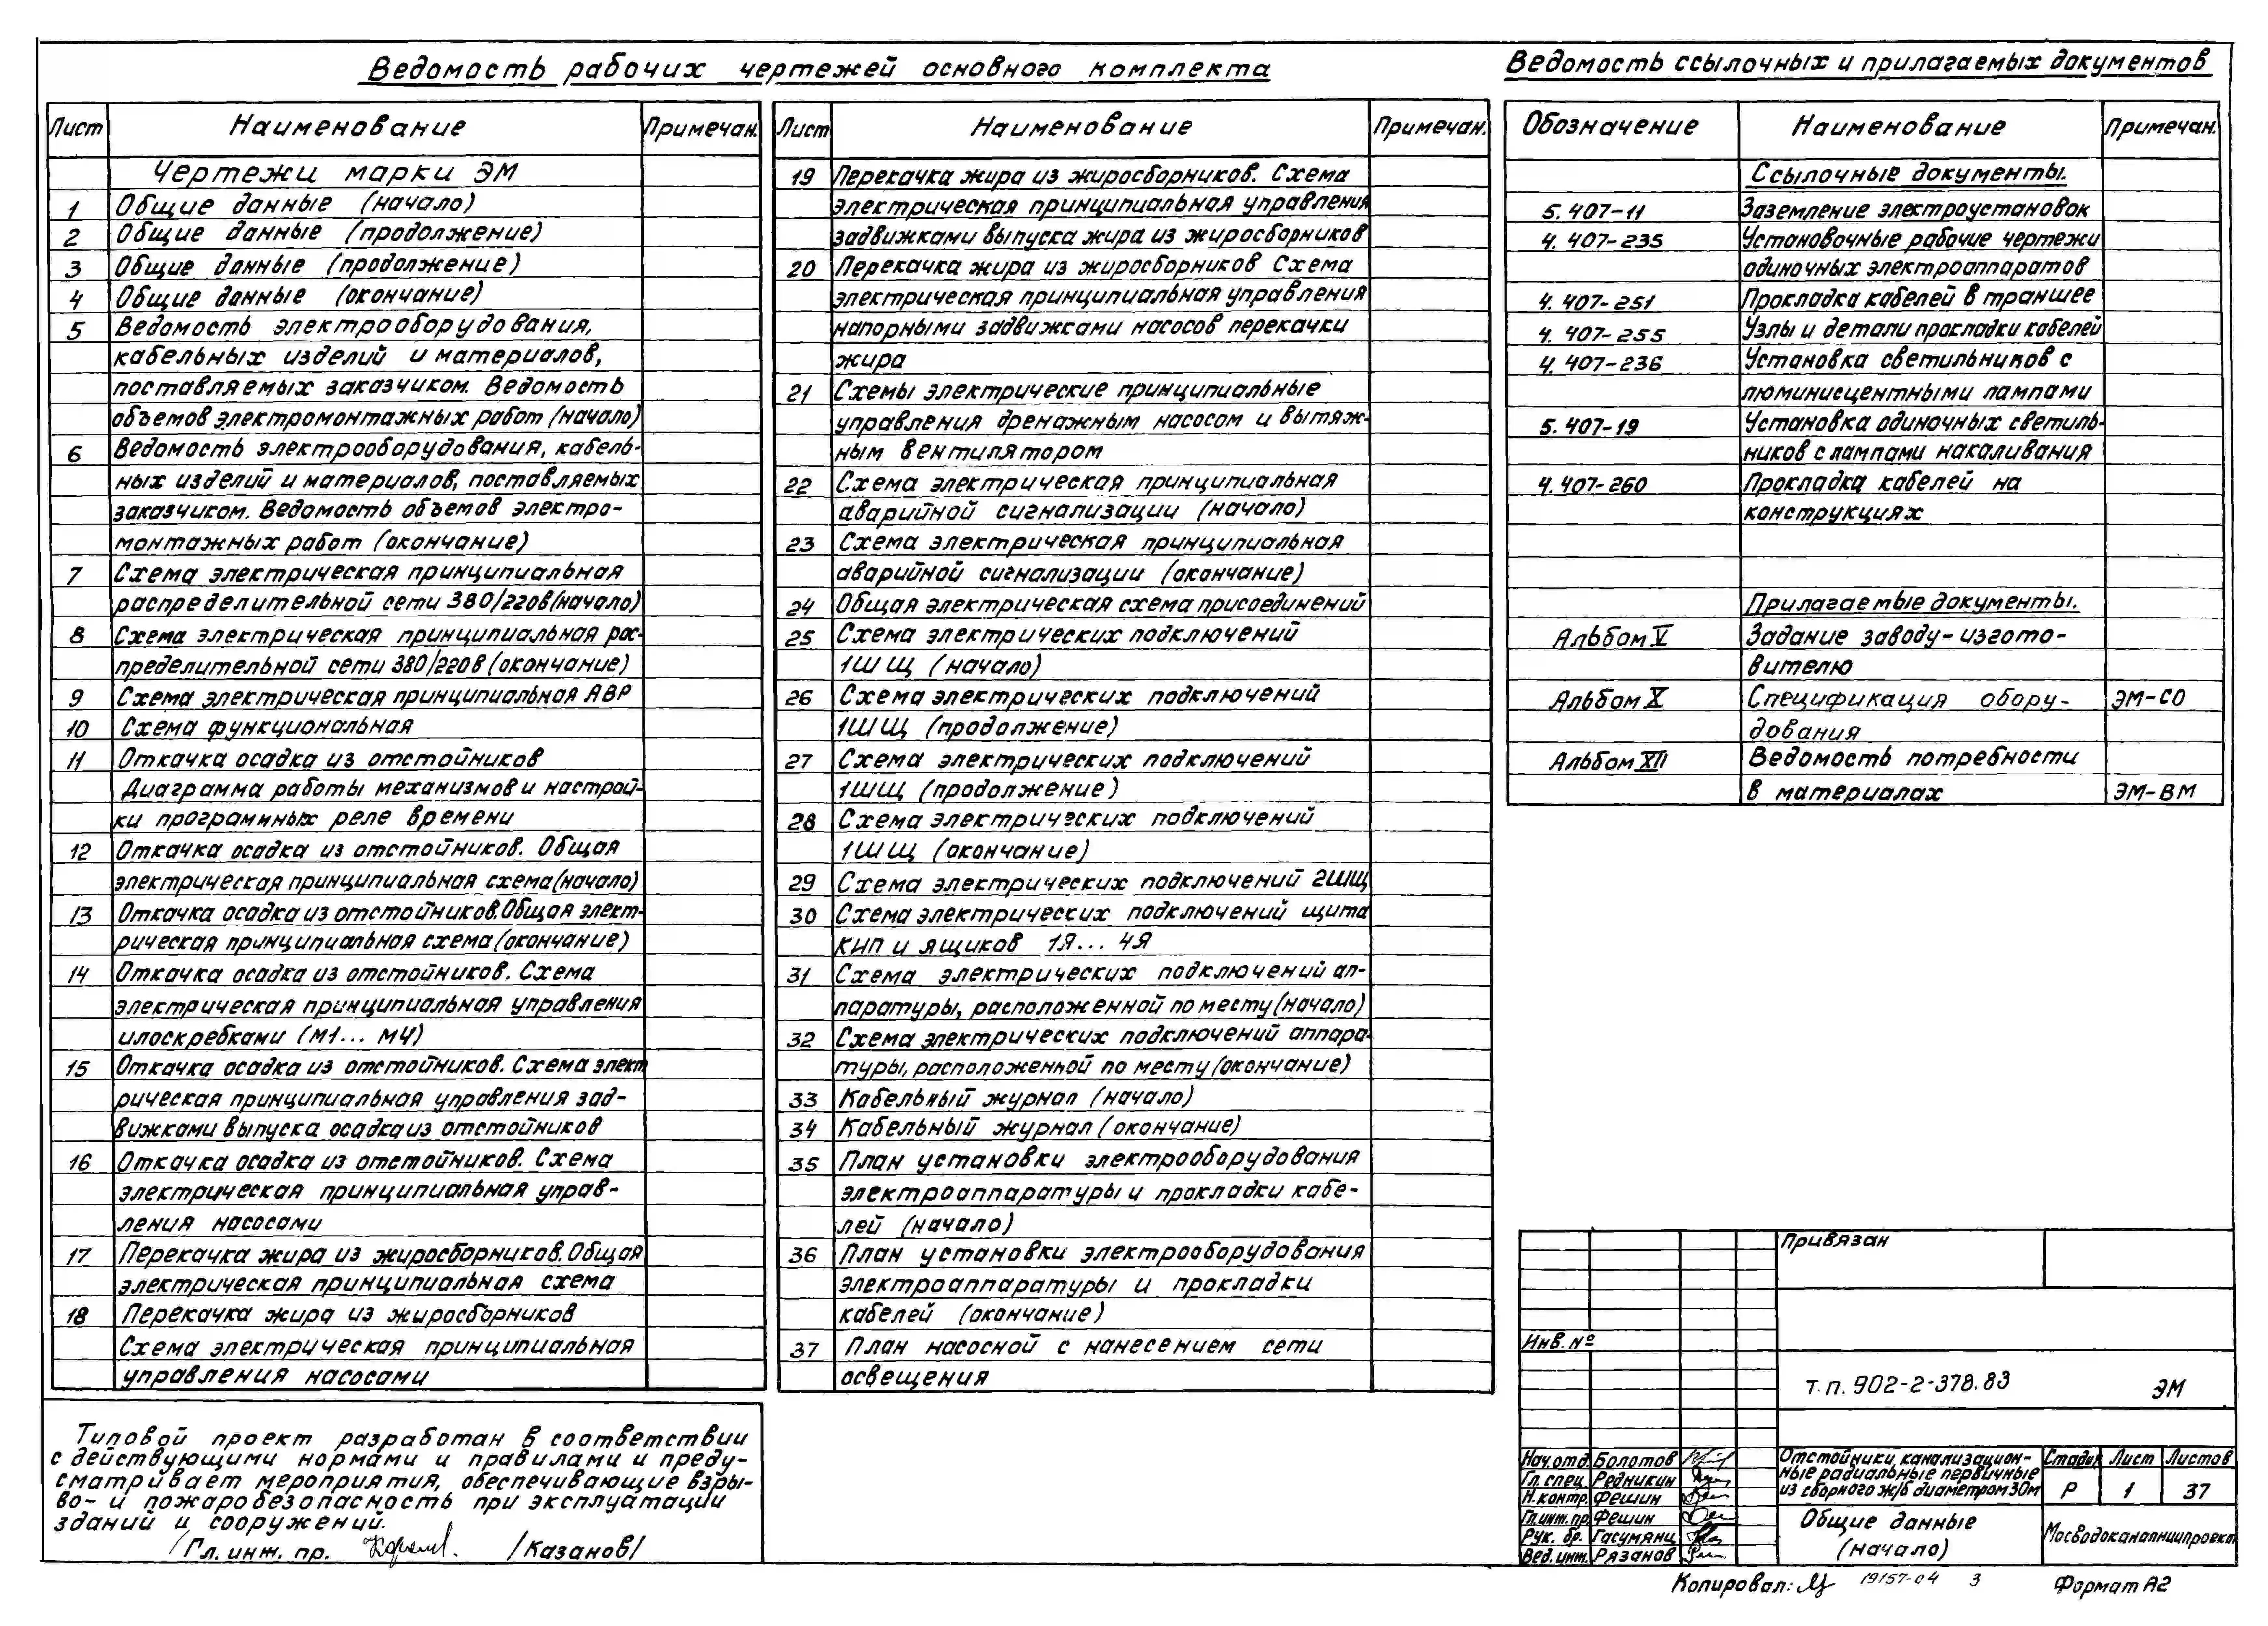 Ведомость рабочих чертежей основного комплекта
Лист Наименование Примечан.
Чертежи марки ЭМ
1 Общие данные (начало)
2 Общие данные (продолжение)
3 Общие данные (продолжение)
4 Общие данные (окончание)
5 Ведомость электрооборудования,
кабельных изделий и материалов,
поставляемых заказчиком. Ведомость
объемов электромонтажных работ (начало)
6 Ведомость электрооборудования, кабель-
ных изделий и материалов, поставляемых
заказчиком. Ведомость объемов электро-
монтажных работ (окончание)
7 Схема электрическая принципиальная
распределительной сети 380/220в (начало)
8 Схема электрическая принципиальная рас-
пределительной сети 380/220в (окончание)
9 Схема электрическая принципиальная АВР
10 Схема функциональная
11 Откачка осадка из отстойников
Диаграмма работы механизмов и настрой-
ки программных реле времени
12 Откачка осадка из отстойников. Общая
электрическая принципиальная схема (начало)
13 Откачка осадка из отстойников. Общая элект-
рическая принципиальная схема (окончание)
14 Откачка осадка из отстойников. Схема
электрическая принципиальная управления
илоскребками (М1... М4)
15 Откачка осадка из отстойников. Схема элект
рическая принципиальная управления зад-
вижками выпуска осадка из отстойников
16 Откачка осадка из отстойников. Схема
электрическая принципиальная управ-
ления насосами
17 Перекачка жира из жиросборников. Общая
электрическая принципиальная схема
18 Перекачка жира из жиросборников
Схема электрическая принципиальная
управления насосами
Лист Наименование Примечан.
19 Перекачка жира из жиросборников. Схема
электрическая принципиальная управления
задвижками выпуска жира из жиросборников
20 Перекачка жира из жиросборников Схема
электрическая принципиальная управления
напорными задвижками насосов перекачки
жира
21 Схемы электрические принципиальные
управления дренажным насосом и вытяж-
ным вентилятором
22 Схема электрическая принципиальная
аварийной сигнализации (начало)
23 Схема электрическая принципиальная
аварийной сигнализации (окончание)
24 Общая электрическая схема присоединений
25 Схема электрических подключений
1ШЩ (начало)
26 Схема электрических подключений
1ШЩ (продолжение)
27 Схема электрических подключений
1ШЩ (продолжение)
28 Схема электрических подключений
1ШЩ (окончание)
29 Схема электрических подключений 2ШЩ
30 Схема электрических подключений щита
КИП и ящиков 1Я... 4Я
31 Схема электрических подключений ап-
паратуры, расположенной по месту (начало)
32 Схема электрических подключений аппара-
туры, расположенной по месту (окончание)
33 Кабельный журнал (начало)
34 Кабельный журнал (окончание)
35 План установки электрооборудования
электроаппаратуры и прокладки кабе-
лей (начало)
36 План установки электрооборудования
электроаппаратуры и прокладки
кабелей (окончание)
37 План насосной с нанесением сети
освещения
Ведомость ссылочных и прилагаемых документов
Обозначение Наименование Примечан.
Ссылочные документы.
5.407-11 Заземление электроустановок
4.407-235 Установочные рабочие чертежи
одиночных электроаппаратов
4.407-251 Прокладка кабелей в траншее
4.407-255 Узлы и детали прокладки кабелей
4.407-236 Установка светильников с
люминисцентными лампами
5.407-19 Установка одиночных светиль-
ников с лампами накаливания
4.407-260 Прокладка кабелей на
конструкциях
Прилагаемые документы.
Альбом V Задание заводу-изгото-
вителю
Альбом X Спецификация обору- ЭМ-СО
дования
Альбом XII Ведомость потребности
в материалах ЭМ-ВМ
Типовой проект разработан в соответствии
с действующими нормами и правилами и преду-
сматривает мероприятия, обеспечивающие взры-
во- и пожаробезопасность при эксплуатации
зданий и сооружений.
/Гл. инж. пр. /Казанов/
Привязан
Инв. №
т.п. 902-2-378.83 ЭМ
Нач.отд. Болотов
Гл. спец. Редникин
Н.контр. Фешин
Гл.инж.пр. Фешин
Рук. бр. Гасумянц
Вед. инж. Рязанов
Отстойники канализацион-
ные радиальные первичные
из сборного ж/б диаметром 30м
Стадия Лист Листов
Р 1 37
Общие данные
(начало)
Мосводоканалниипроект
Копировал: 19157-04 3 Формат А2